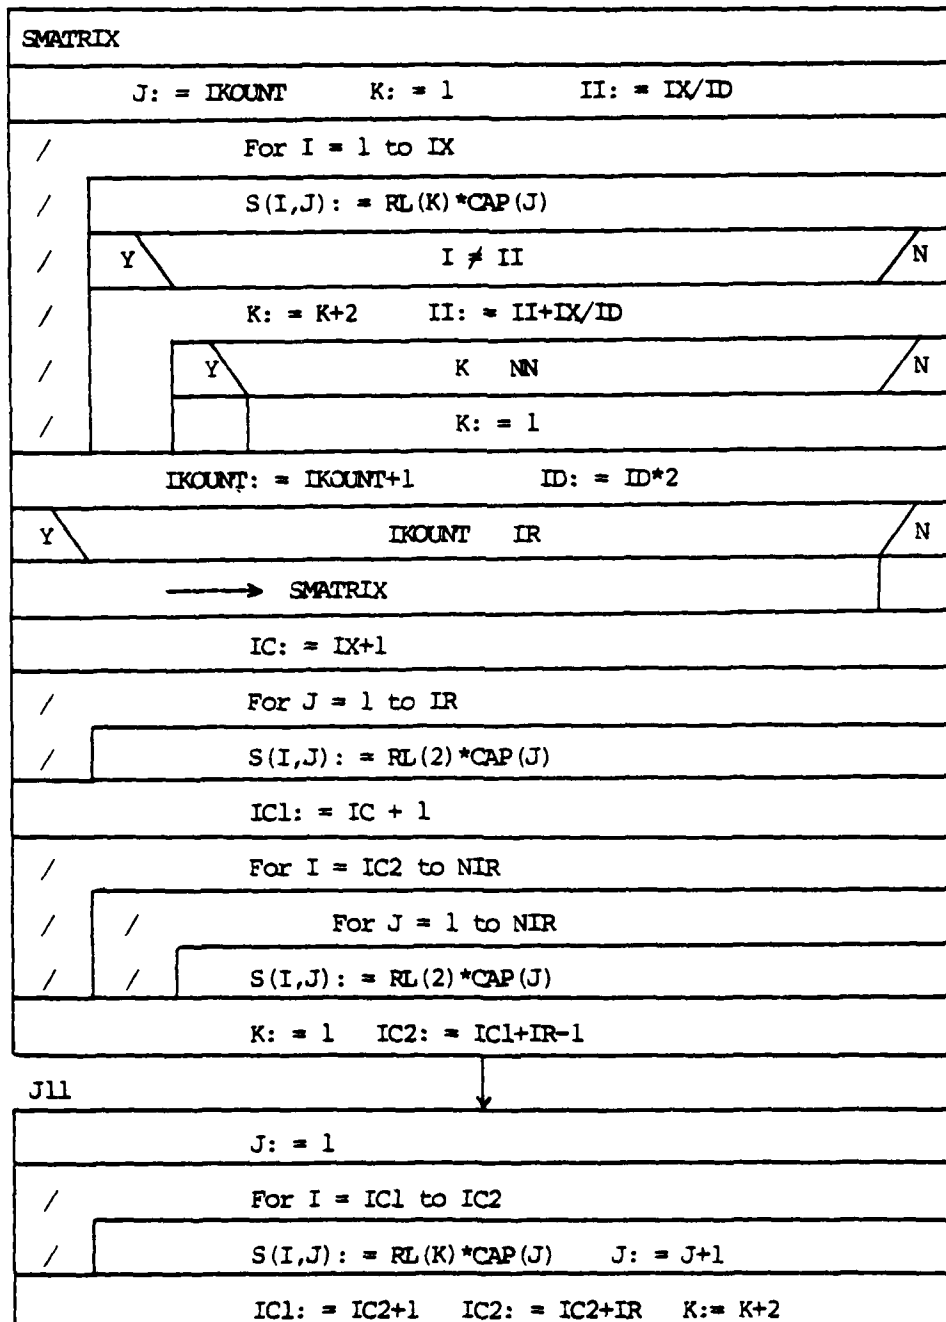 SMATRIX
J: = IKOUNT K: = 1 II: = IX/ID
/ For I = 1 to IX
/ S(I,J): = RL(K)*CAP(J)
/ Y I ≠ II N
/ K: = K+2 II: = II+IX/ID
/ Y K NN N
/ K: = 1
IKOUNT: = IKOUNT+1 ID: = ID*2
Y IKOUNT IR N
→ SMATRIX
IC: = IX+1
/ For J = 1 to IR
/ S(I,J): = RL(2)*CAP(J)
IC1: = IC + 1
/ For I = IC2 to NIR
/ / For J = 1 to NIR
/ / S(I,J): = RL(2)*CAP(J)
K: = 1 IC2: = IC1+IR-1
J11
J: = 1
/ For I = IC1 to IC2
/ S(I,J): = RL(K)*CAP(J) J: = J+1
IC1: = IC2+1 IC2: = IC2+IR K:= K+2